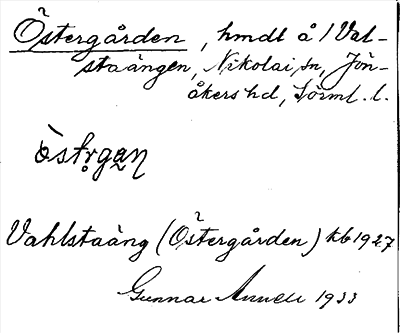 Östergården, hmdl å/Val-
staängen, Nikolai sn, Jön-
åkers hd, Sörml. l.
òstrgaη
Vahlstaäng (Östergården) kb 1927
Gunnar 1933